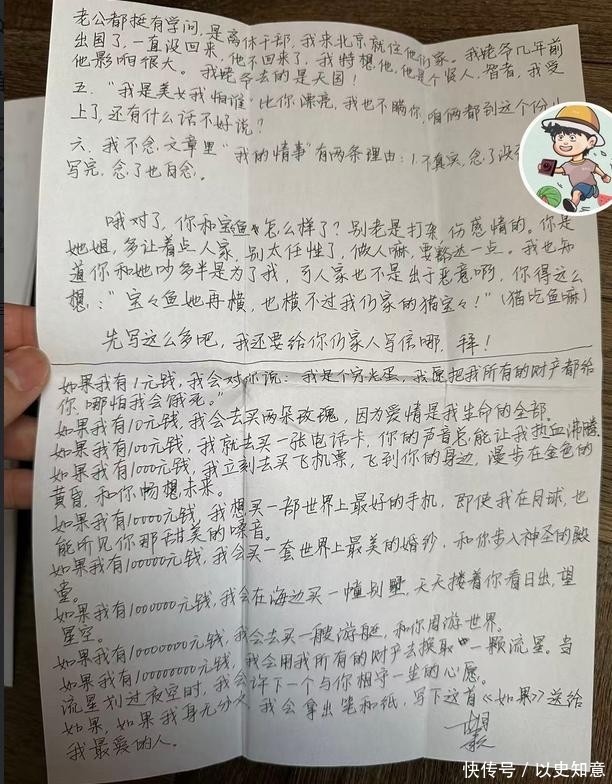 老公都挺有学问,是离休干部,我来北京就住他们家。我姥爷几年前
出国了,一直没回来,他不回来了,我特想他,他是个贤人、智者,我受
他影响很大。我姥爷去的是天国!
五、“我是美女我怕谁”比你漂亮,我也不瞒你,咱俩都到这个份儿
上了,还有什么话不好说?
六、我不念文章里“我的情事”有两条理由:1.不真实,念了没
写完,念了也白念。
哦对了,你和宝鱼怎么样了?别老是打杂,伤感情的。你是
她姐,多让着点人家,别太任性了,做人嘛,要豁达一点。我也知
道你和她吵多半是为了我,可人家也不是出于恶意啊,你得这么
想:“宝々鱼她再横,也横不过我们家的猫宝々!”(猫吃鱼嘛)
先写这么多吧,我还要给你们家人写信哪,拜!
如果我有1元钱,我会对你说:我是个穷光蛋,我愿把我所有的财产都给
你,哪怕我会饿死。”
如果我有10元钱,我会去买两朵玫瑰,因为爱情是我生命的全部。
如果我有100元钱,我就去买一张电话卡,你的声音总能让我热血沸腾。
如果我有1000元钱,我立刻去买飞机票,飞到你的身边,漫步在金色的
黄昏,和你畅想未来。
如果我有10000元钱,我想买一部世界上最好的手机,即使我在月球,也
能听见你那甜美的嗓音。
如果我有100000元钱,我会买一套世界上最美的婚纱,和你步入神圣的殿
堂。
如果我有1000000元钱,我会在海边买一幢别墅,天天搂着你看日出,望
星空。
如果我有10000000元钱,我会去买一艘游艇,和你周游世界。
如果我有100000000元钱,我会用我所有的财产去换取一颗流星。当
流星划过夜空时,我会许下一个与你相守一生的心愿。
如果,如果我身无分文,我会拿出笔和纸,写下这首《如果》送给
我最爱的人。
快传号/以史知意